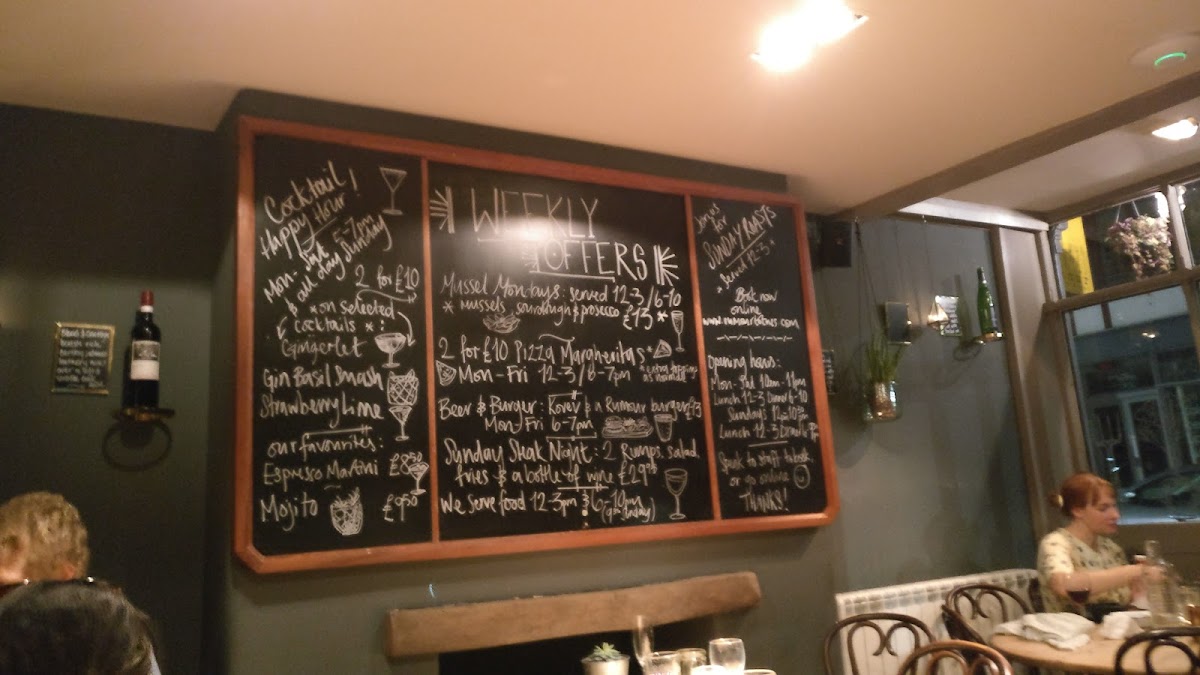 Cocktail!
Happy Hour
Mon - Sat 5-7pm
& all day Sunday
2 for £10
*on selected
cocktails *:
Gingerlet
Gin Basil Smash
Strawberry Lime
our favourites:
Espresso Martini £8.50
Mojito £9.50
WEEKLY
OFFERS
Mussel Mondays: served 12-3/6-10
* mussels, sourdough & prosecco £13 *
2 for £10 Pizza Margheritas *
Mon - Fri 12-3/6-7pm * extra toppings
as normal
Beer & Burger: Korev & a Rumour burger £13
Mon - Fri 6-7pm
Sunday Steak Night: 2 Rumps, salad
fries & a bottle of wine £29.95
We serve food 12-3pm & 6-10pm
(9pm Sunday)
Join us
for
SUNDAY ROASTS
* served 12-3 *
Book now
online
Opening hours:
Mon-Sat 10am-11pm
Lunch 12-3 Dinner 6-10
Sundays
Lunch 12-3 Dinner
Speak to staff to book
or go online
THANKS!